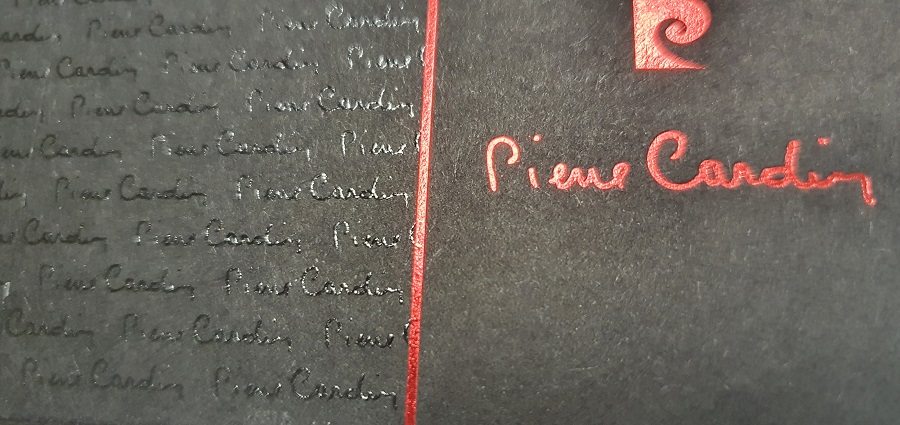 Cardin Pierre Cardin Pierre Cardin
Pierre Cardin Pierre Cardin Pierre
Pierre Cardin Pierre Cardin
Cardin Pierre Cardin Pierre
Pierre Cardin Pierre Cardin
Cardin Pierre Cardin Pierre
Pierre Cardin Pierre Cardin
Cardin Pierre Cardin Pierre
Pierre Cardin Pierre Cardin
Pierre Cardin